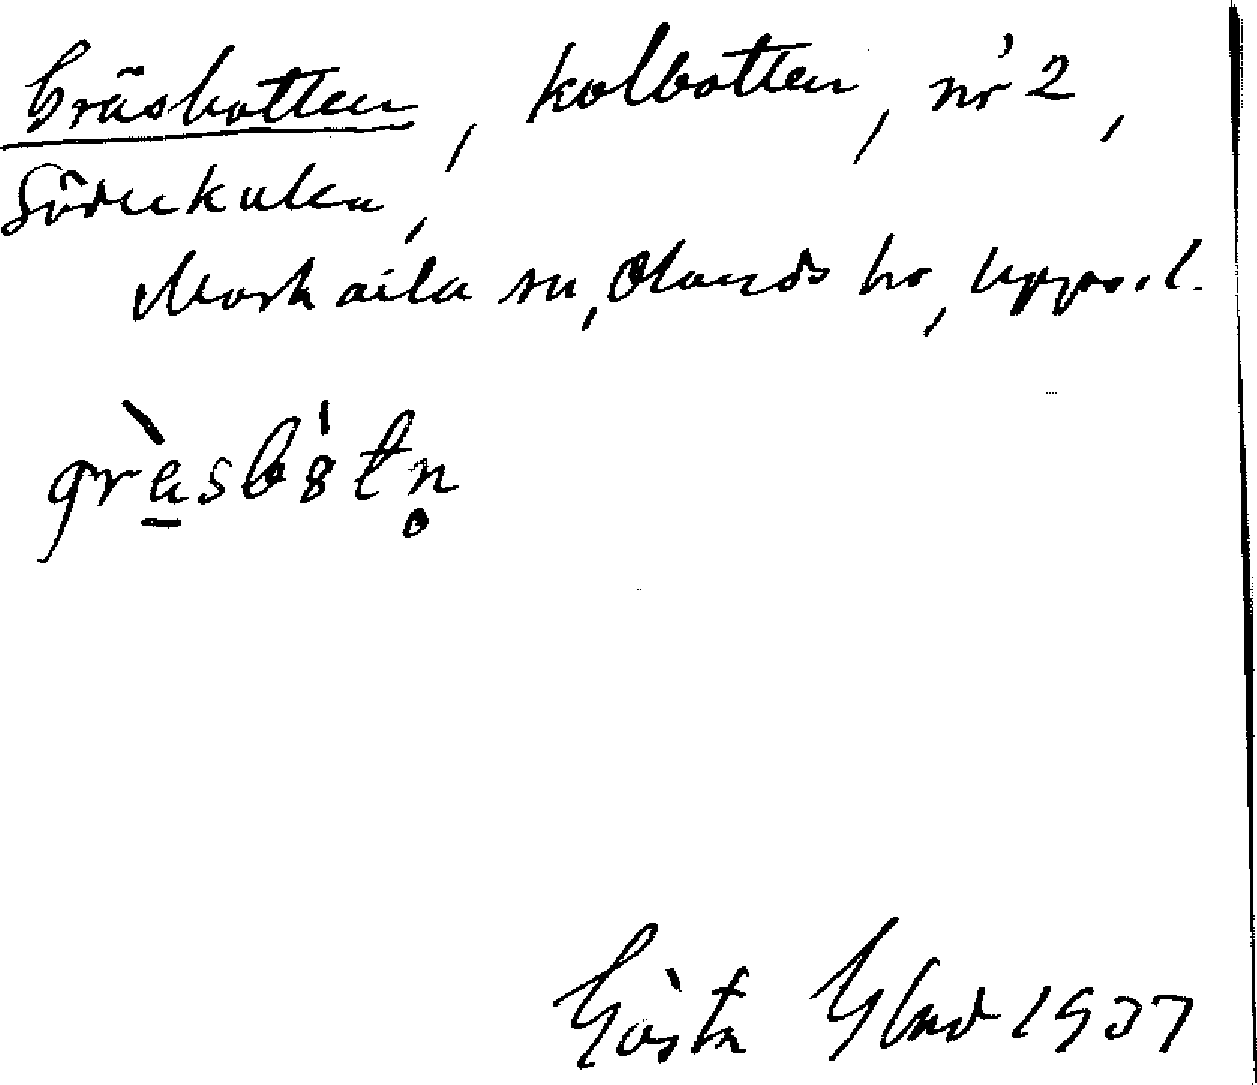 Gräsbotten, kolbotten, nr 2,
Söderkulla,
Morkarla sn, Olands hd, Uppsal.
grȁsbo̍tn̥
Gösta Glad 1937